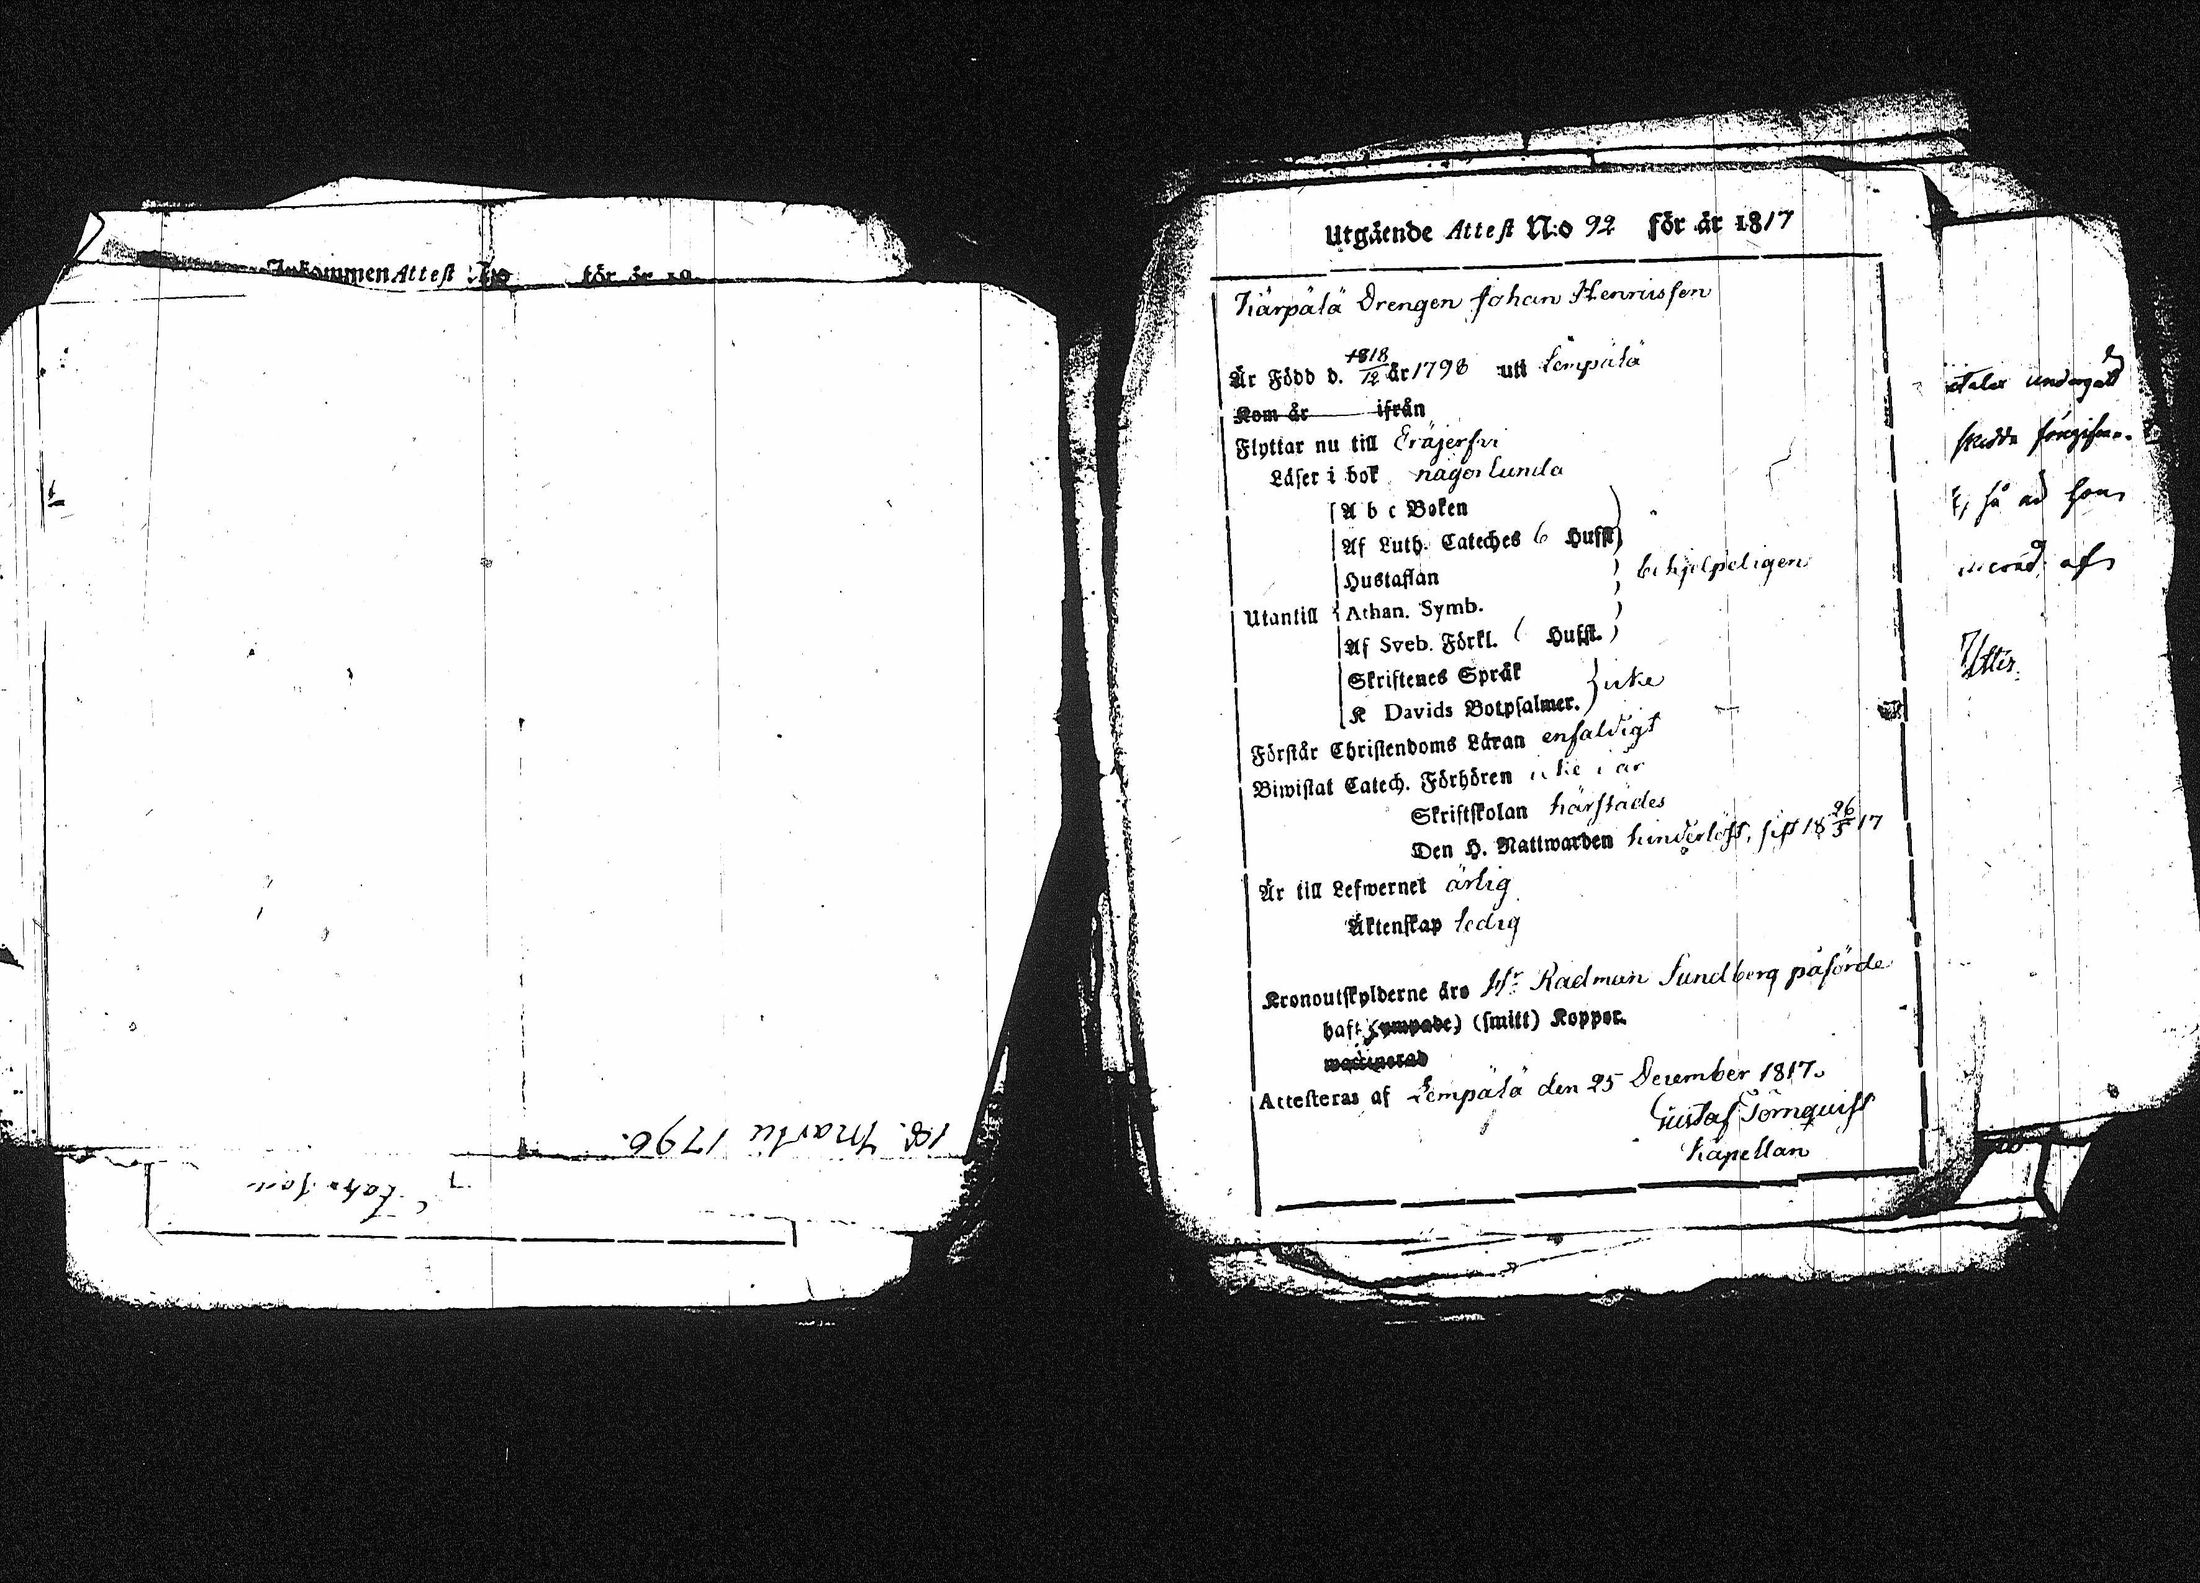 Inkommen Attest N:o för år 18
18. Martii 1796.
Utgående Attest N:o 92 för år 1817
Kärpälä Drengen Johan Henricsson
Är Född d. 18/12 år 1798 uti Lempälä
Kom år ifrån
Flyttar nu till Eräjerfvi
Läser i bok någorlunda
A b c Boken
Af Luth. Cateches 6 Hufst.
Hustaflan
behjelpeligen
Utantill Athan. Symb.
Af Sveb. Förkl. ( Hufst. )
Skriftenes Språk
icke
K Davids Botpsalmer.
Förstår Christendoms Läran enfaldigt
Biwistat Catech. Förhören icke i år
Skriftskolan härstädes
Den H. Nattwarden hinderlöst, sist 18 26/5 17
Är till Lefwernet ärlig
Äktenskap ledig
Kronoutskylderne äro Hr. Radman Sundberg påförde
haft (ympade) (smitt) Koppor.
waccinerad
Attesteras af Lempälä den 25 December 1817.
Gustaf Törnquist
Kapellan